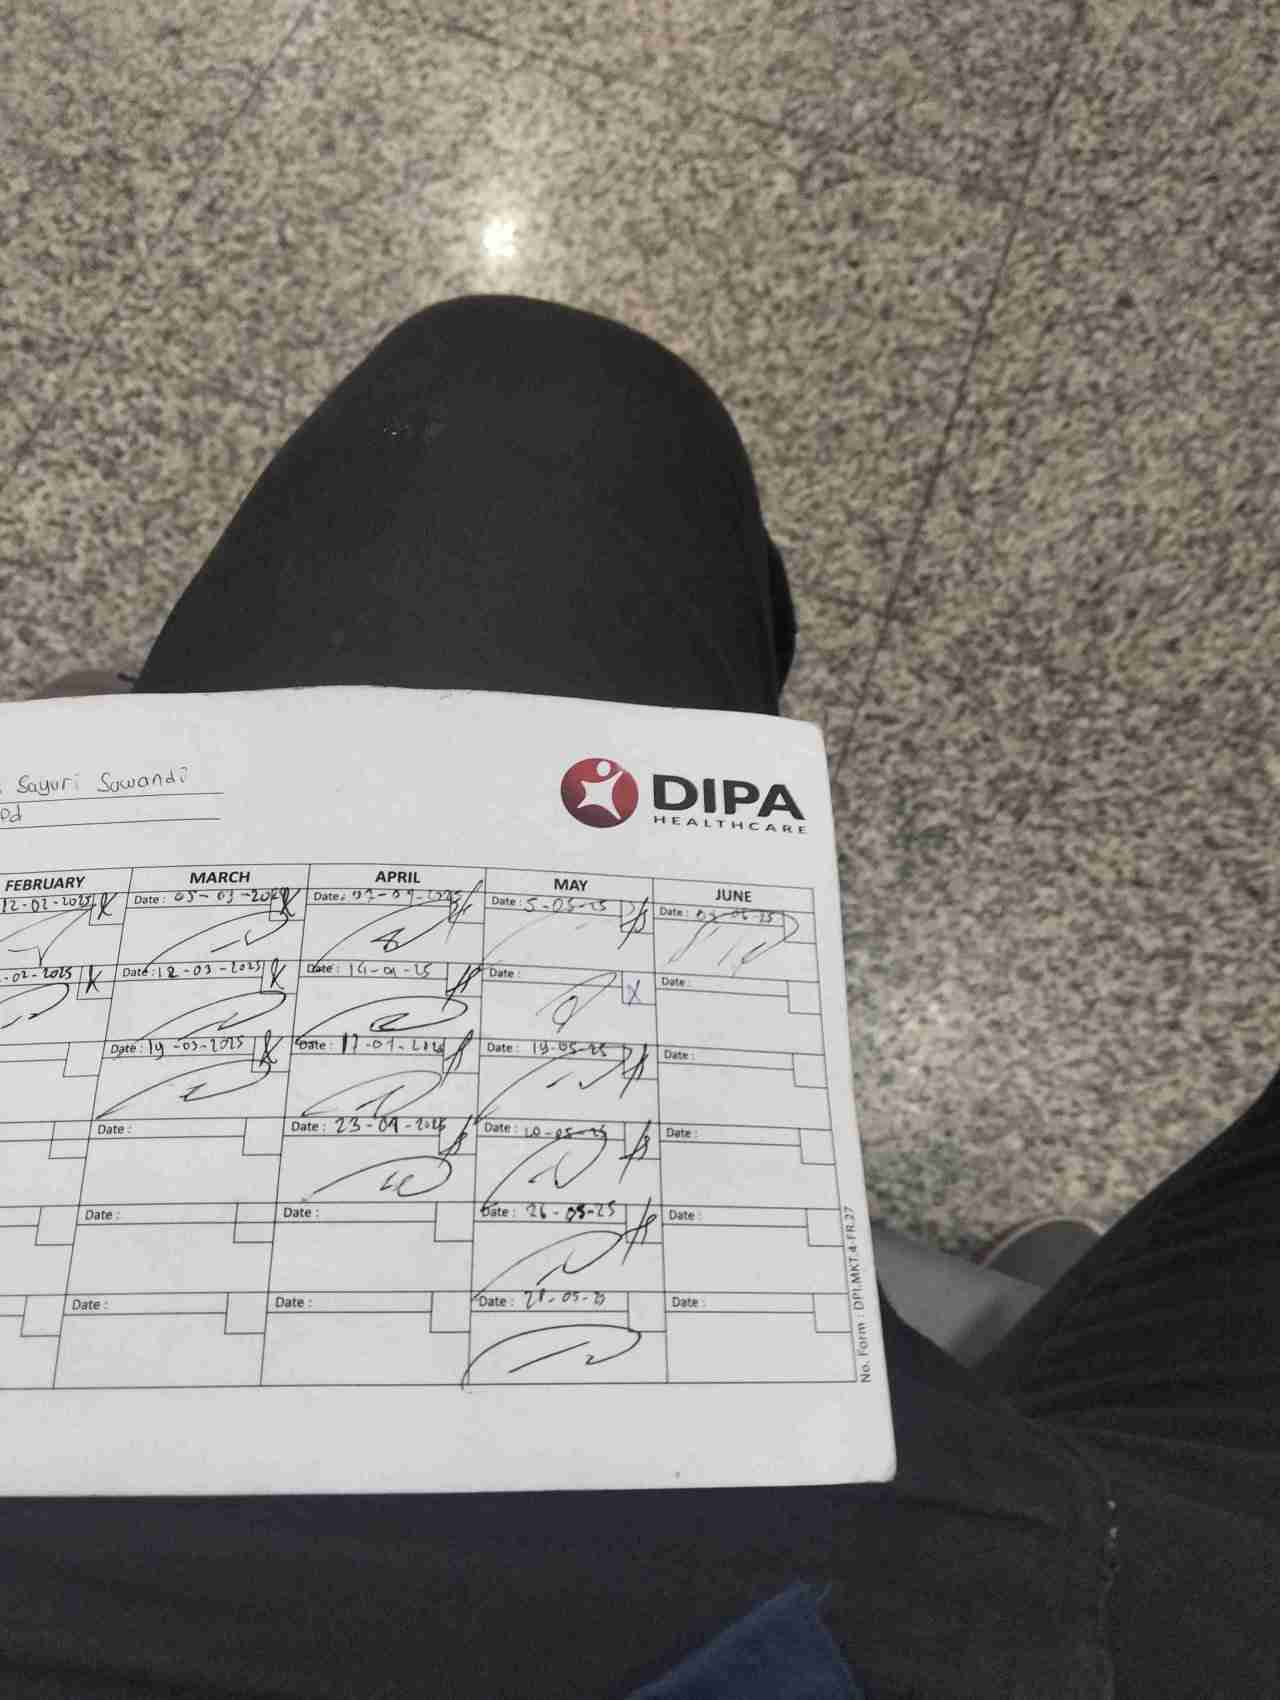 Sayuri Sawandi
Pd
DIPA
HEALTHCARE
FEBRUARY MARCH APRIL MAY JUNE
12-02-2025 Date : 05-03-2025 Date : 07-04-2025 Date : 5-05-25 Date : 03-06-25
-02-2025 Date : 12-03-2025 Date : 14-04-25 Date : Date :
Date : 19-03-2025 Date : 17-04-2025 Date : 19-05-25 Date :
Date : Date : 23-04-2025 Date : 20-05-25 Date :
Date : Date : Date : 26-05-25 Date :
Date : Date : Date : 28-05-25 Date :
No. Form : DPI.MKT.4-FR.27